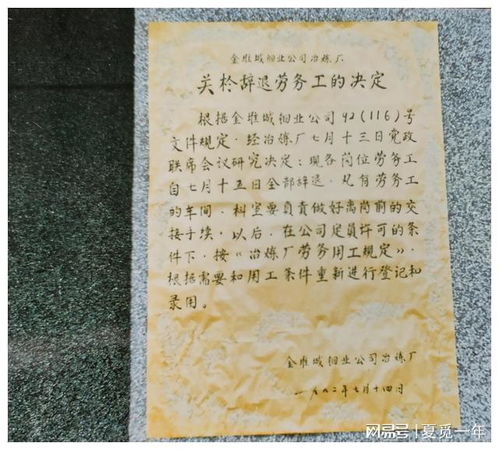 金堆城钼业公司冶炼厂
关于辞退劳务工的决定
根据金堆城钼业公司92(116)号
文件规定.经冶炼厂七月十三日党政
联席会议研究决定:现各岗位劳务工
自七月十五日全部辞退.凡有劳务工
的车间.科室要负责做好离岗前的交
接手续,以后,在公司定员许可的条
件下,按《冶炼厂劳务用工规定》,
根据需要和用工条件重新进行登记和
录用。
金堆城钼业公司冶炼厂
一九九二年七月十四日
网易号|夏觅一年